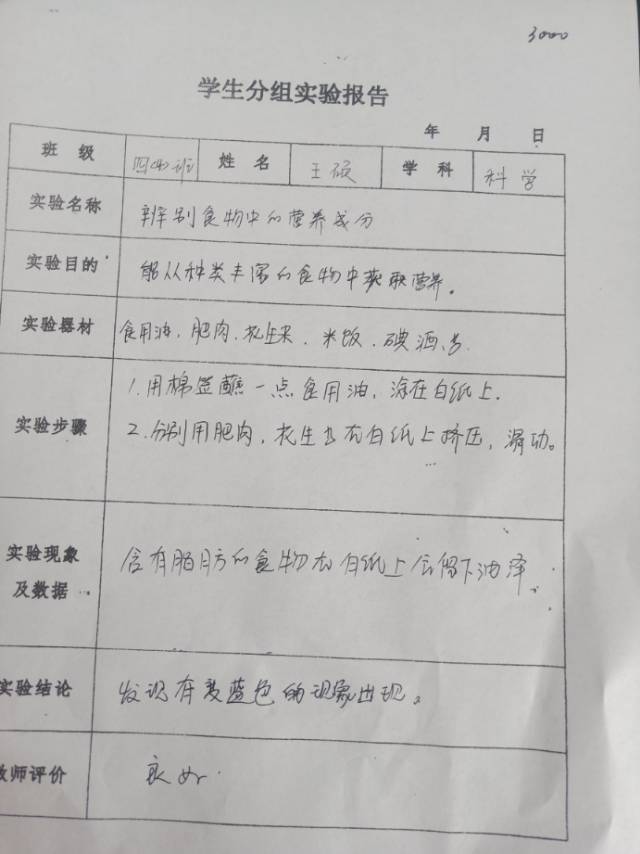 3000
学生分组实验报告
年 月 日
班 级 四(4)班 姓 名 王硕 学 科 科学
实验名称 辨别食物中的营养成分
实验目的 能从种类丰富的食物中获取营养。
实验器材 食用油、肥肉、花生米、米饭、碘酒、等
1.用棉签蘸一点食用油,涂在白纸上.
实验步骤 2.分别用肥肉,花生米在白纸上挤压,滑动。
实验现象
及数据 含有脂肪的食物在白纸上会留下油泽。
实验结论 发现有变蓝色的现象出现。
教师评价 良好.